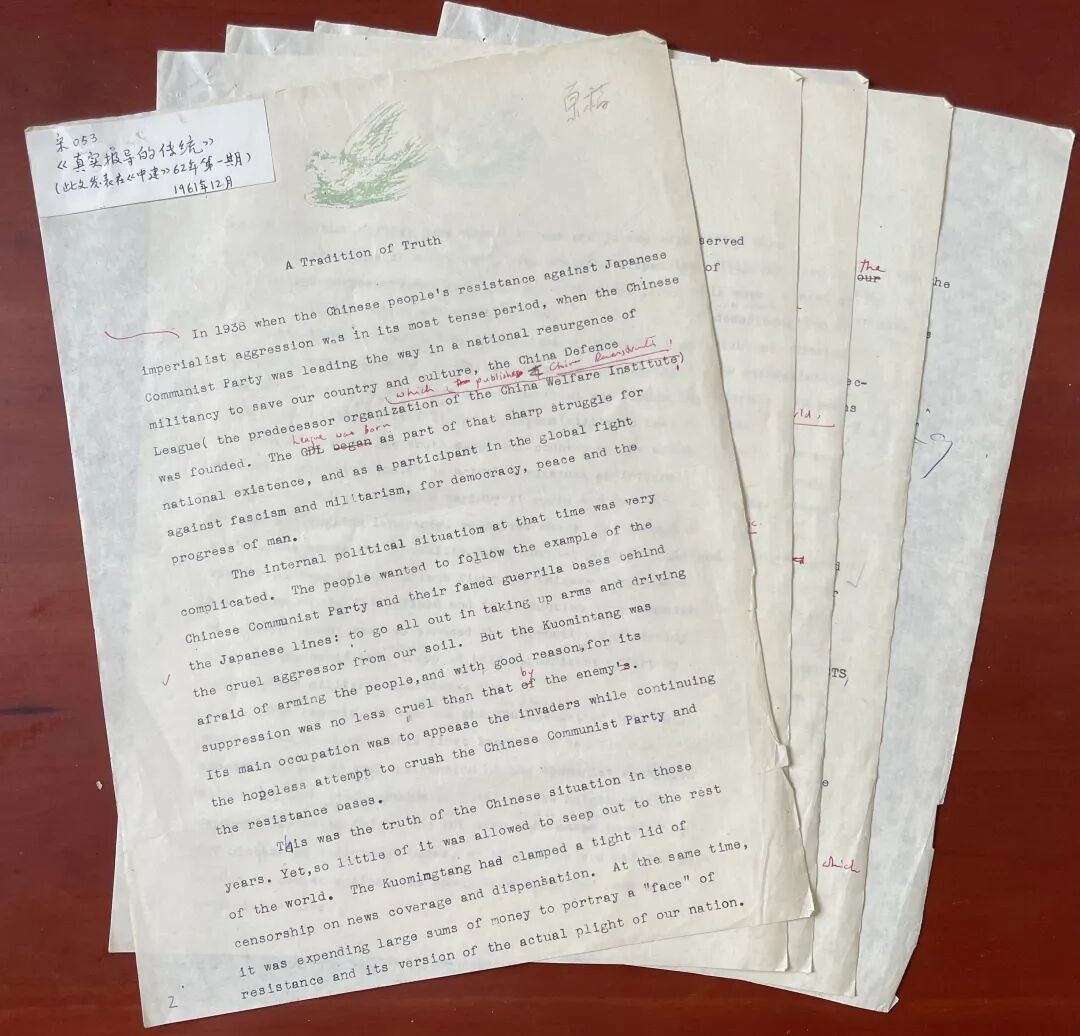 宋053
《真实报导的传统》
(此文发表在《中建》62年第一期)
1961年12月
原稿
A Tradition of Truth
In 1938 when the Chinese people's resistance against Japanese
imperialist aggression was in its most tense period, when the Chinese
Communist Party was leading the way in a national resurgence of
militancy to save our country and culture, the China Defence
which publishes China Reconstructs,
League( the predecessor organization of the China Welfare Institute)
League was born
was founded. The CDL began as part of that sharp struggle for
national existence, and as a participant in the global fight
against fascism and militarism, for democracy, peace and the
progress of man.
The internal political situation at that time was very
complicated. The people wanted to follow the example of the
Chinese Communist Party and their famed guerrila bases behind
the Japanese lines: to go all out in taking up arms and driving
the cruel aggressor from our soil. But the Kuomintang was
afraid of arming the people,and with good reason,for its
by
suppression was no less cruel than that of the enemy's.
Its main occupation was to appease the invaders while continuing
the hopeless attempt to crush the Chinese Communist Party and
the resistance bases.
This was the truth of the Chinese situation in those
years. Yet,so little of it was allowed to seep out to the rest
of the world. The Kuomingtang had clamped a tight lid of
censorship on news coverage and dispensation. At the same time,
it was expending large sums of money to portray a "face" of
resistance and its version of the actual plight of our nation.
2
served
of
which
the
our
he
TS,